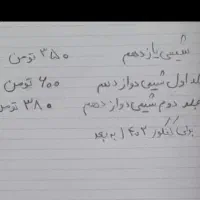 شیمی یازدهم ۳۵۰ تومن
جلد اول شیمی دوازدهم ۶۰۰ تومن
جلد دوم شیمی دوازدهم ۳۸۰ تومن
کنکور ۱۴۰۲